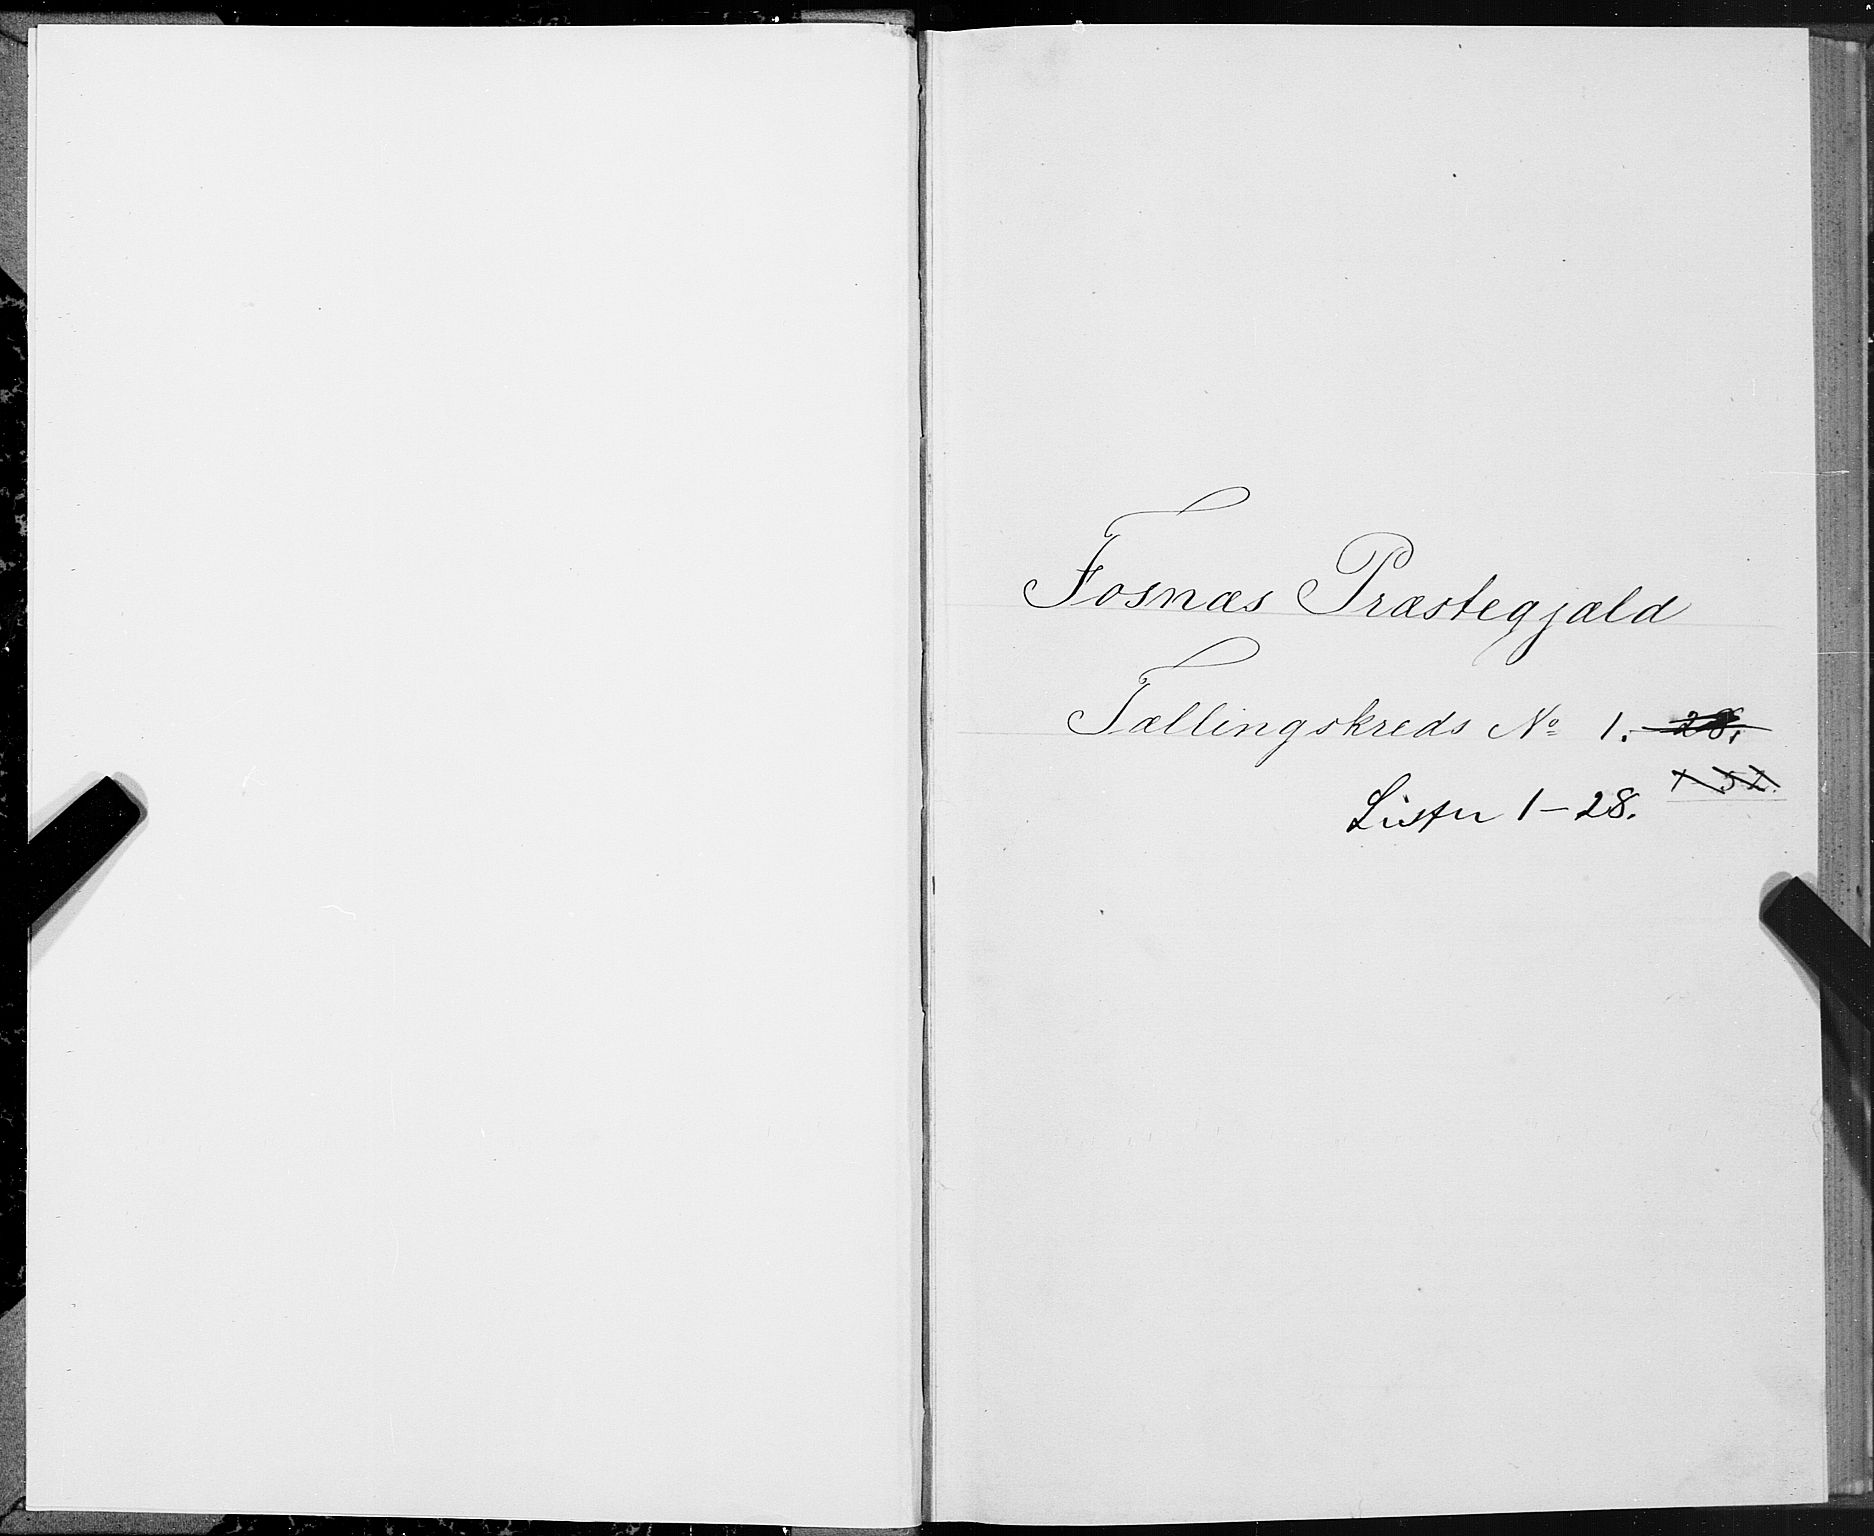 Fosnæs Præstegjæld
Tællingskreds No 1.
Lister 1-28.